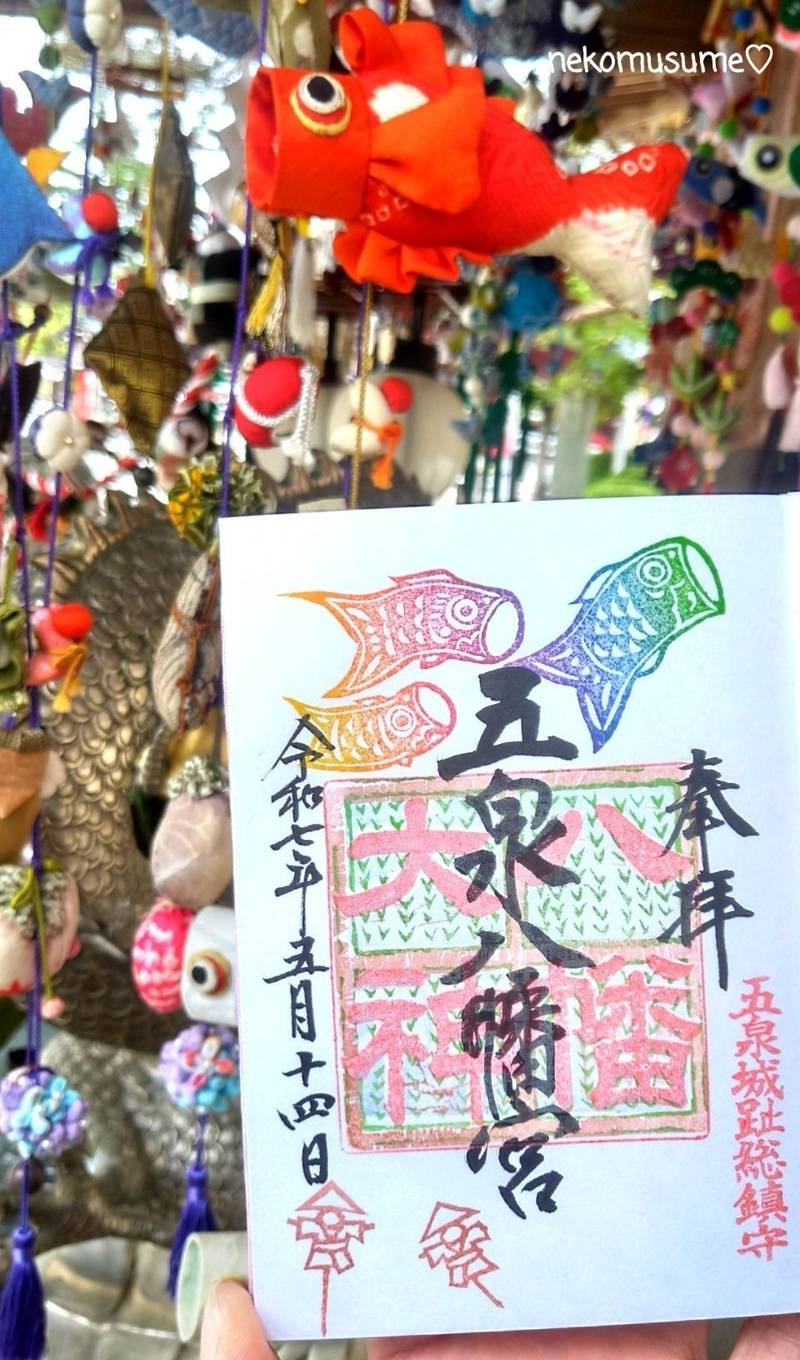 nekomusume♡
奉拝
五泉城趾総鎮守
五泉八幡宮
八幡
大神
令和七年五月十四日